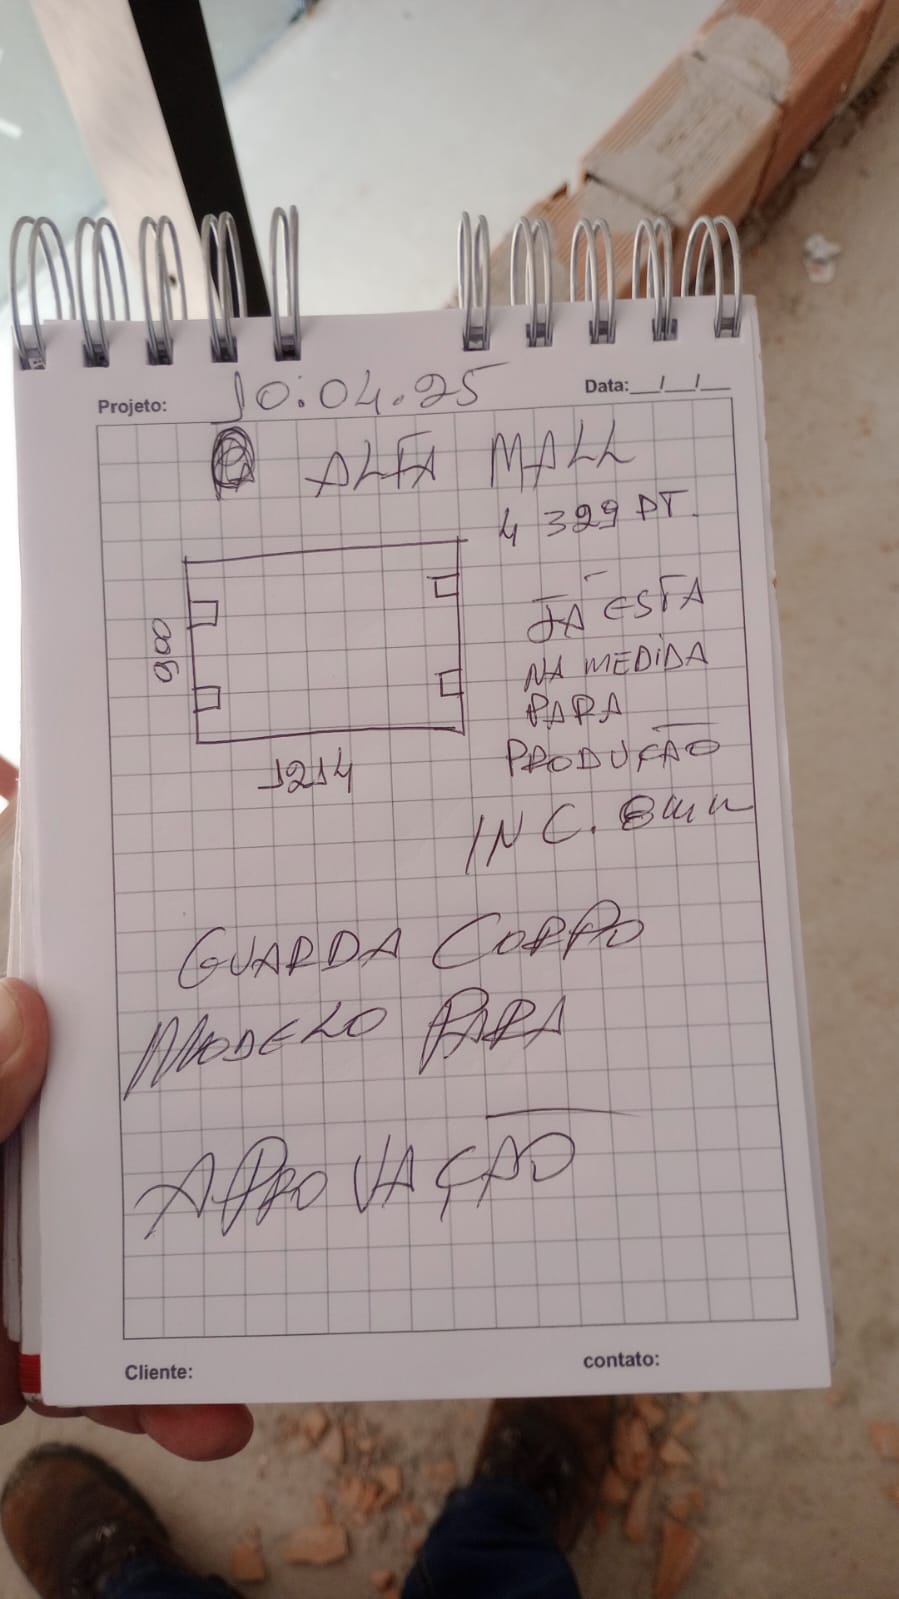 Projeto: 10.04.25 Data:__/__/__
ALFA MALL
4 329 PT.
JÁ ESTA
NA MEDIDA
PARA
PRODUÇÃO
900
1214
INC. 8mm
GUARDA CORPO
MODELO PARA
APROVAÇÃO
Cliente: contato: